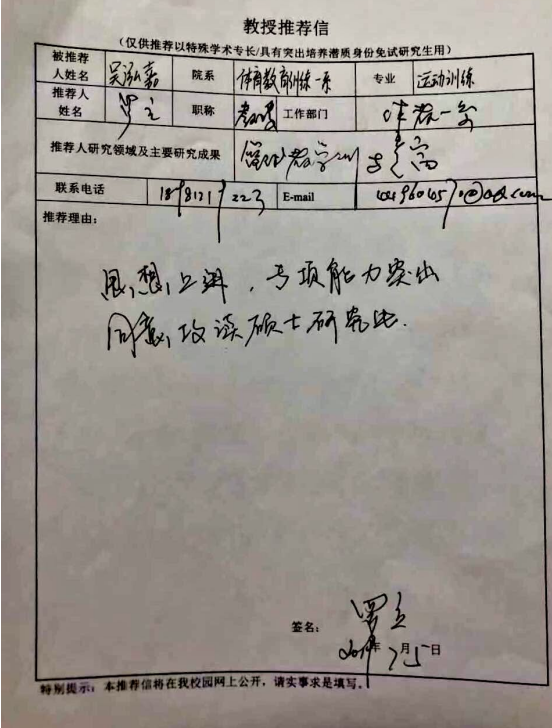 教授推荐信
(仅供推荐以特殊学术专长/具有突出培养潜质身份免试研究生用)
被推荐人姓名 吴泓嘉 院系 体育教育训练一系 专业 运动训练
推荐人姓名 罗立 职称 教授 工作部门 体教一系
推荐人研究领域及主要研究成果 教学训
联系电话 E-mail
推荐理由:
思想上进,专项能力突出
同意攻读硕士研究生.
签名: 罗立
年7月5日
特别提示:本推荐信将在我校园网上公开,请实事求是填写。